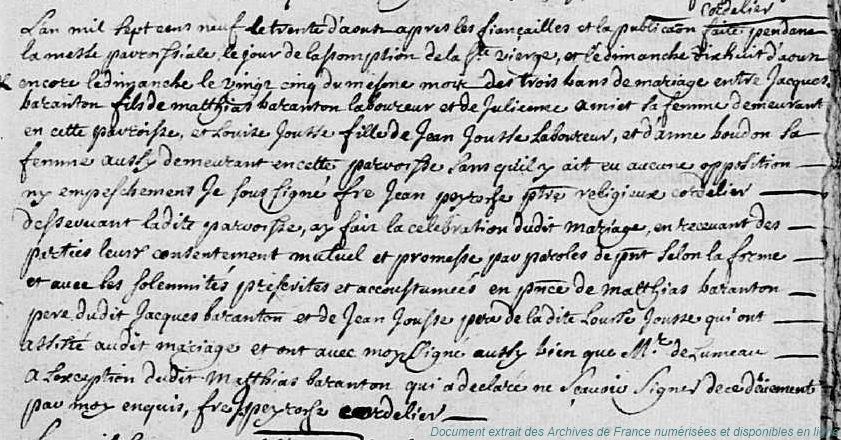 cordelier
Lan mil sept cens neuf le trente d'aoust apres les fiançailles et la publicaõn faite pendant
la messe parroissiale le jour de lassomption de la Ste vierge, et le dimanche dixhuit d'aoust
encore le dimanche le vingt cinq du mesme mois des trois bans de mariage entre Jacques
baranton fils de matthias baranton laboureur et de Julienne amiet sa femme demeurant
en cette parroisse, et Louise Jousse fille de Jean Jousse Laboureur, et d'anne boudon sa
femme aussy demeurant en cette parroisse sans quil y ait eu aucune opposition
ny empeschemens Je soussigné fre Jean peyroche ptre religieux cordelier
desservant ladite parroisse, ay fait la celebration dudit mariage, en recevant des
parties leurs consentement mutuel et promesse par paroles de pnt selon la forme
et avec les solemnités prescrites et accoustumées en pnce de matthias baranton
pere dudit Jacques baranton et de Jean Jousse pere de ladite Louise Jousse qui ont
assisté audit mariage et ont avec moy signé aussy bien que Mr. de Lumeau
a lexception dudit Matthias baranton qui a declaré ne sçavoir signer de ce deüement
par moy enquis, fre J peyroche cordelier
Document extrait des Archives de France numérisées et disponibles en ligne